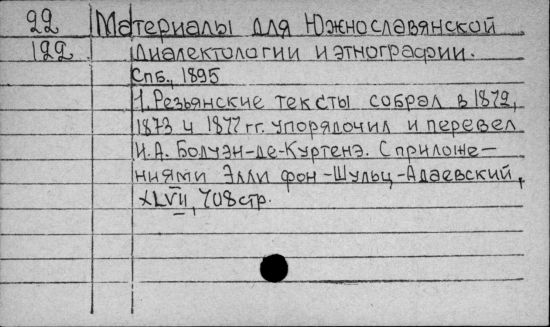 22 Материалы для Южнославянской
122 диалектологии и этнографии.
Спб., 1895
1. Резьянские тексты собрал в 1872,
1873 и 1877 гг. упорядочил и перевел
И.А. Бодуэн-де-Куртенэ. С приложе-
ниями Элли фон-Шульц-Адаевский,
XLVII, 708 стр.